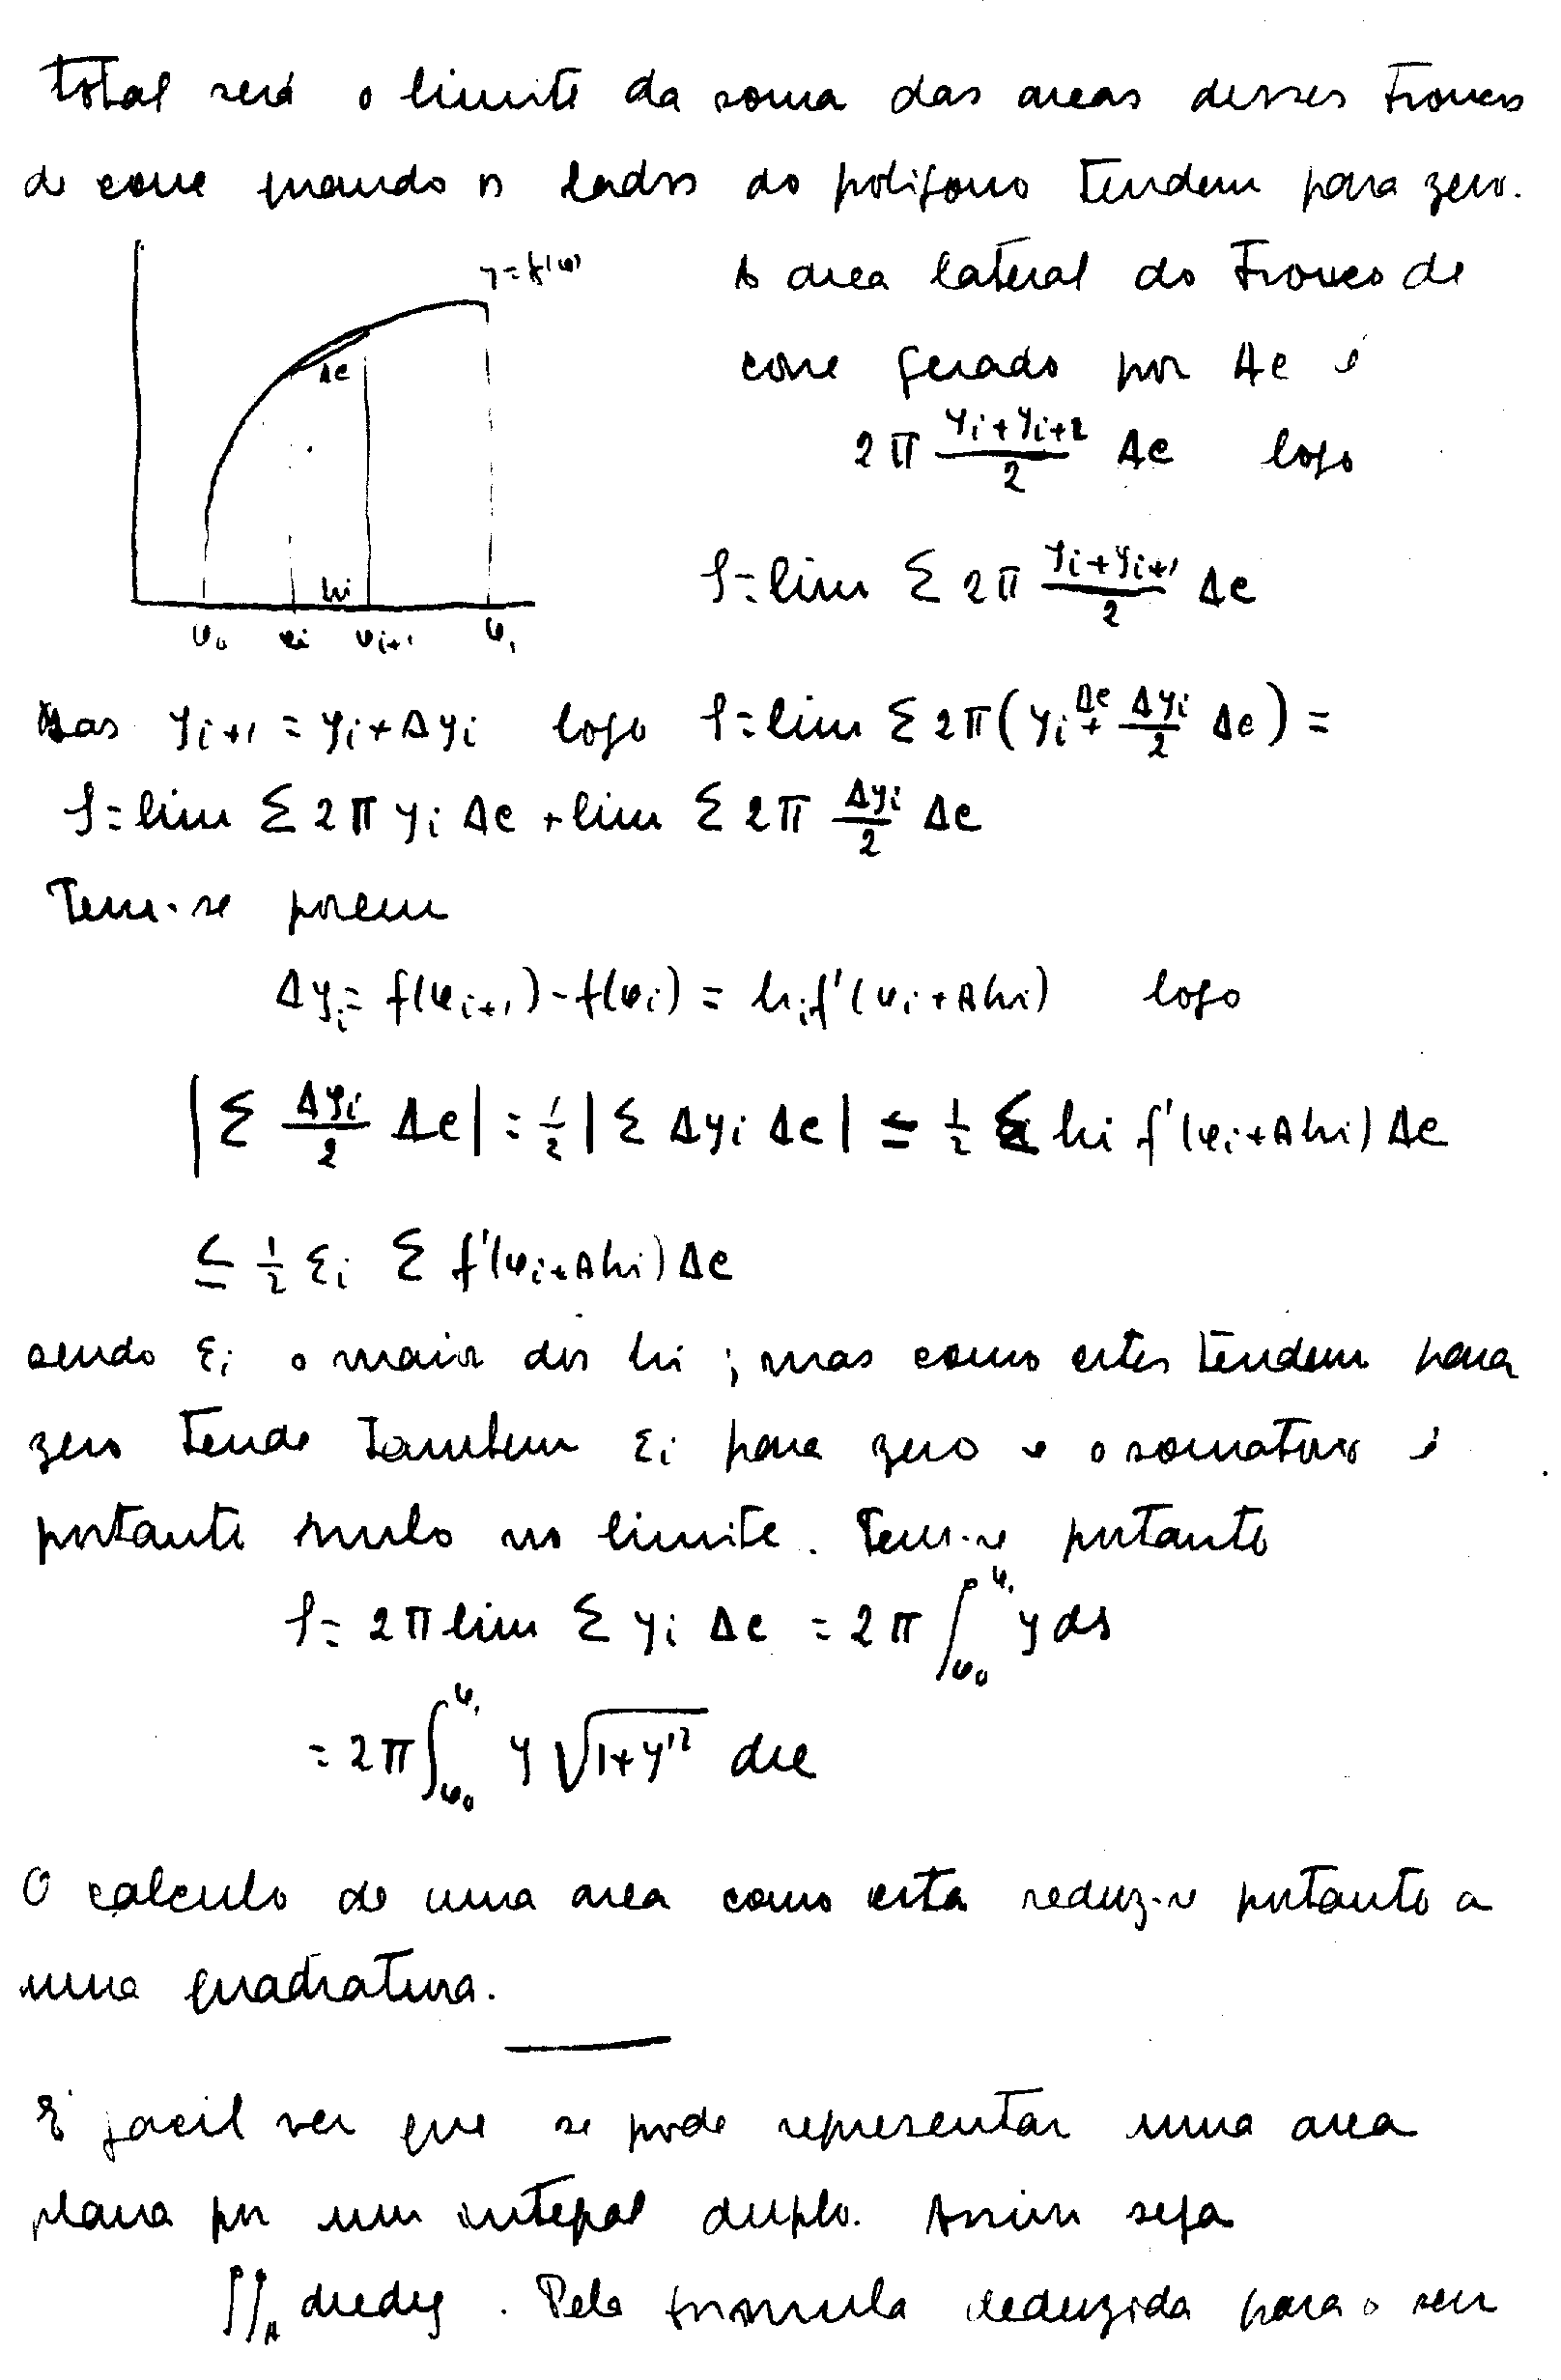 total será o limite da soma das areas desses troncos
de cone quando os lados do poligono tendem para zero.
y = f(x)
A area lateral do tronco de
Δc
cone gerado por Δc é
2π (y_i + y_{i+2})/2 Δc logo
S = lim Σ 2π (y_i + y_{i+1})/2 Δc
h_i
x_0 x_i x_{i+1} x_1
Mas y_{i+1} = y_i + Δy_i logo S = lim Σ 2π (y_i Δc + Δy_i/2 Δc) =
S = lim Σ 2π y_i Δc + lim Σ 2π Δy_i/2 Δc
Tem-se porem
Δy_i = f(x_{i+1}) - f(x_i) = h_i f'(x_i + θh_i) logo
|Σ Δy_i/2 Δc| = 1/2 |Σ Δy_i Δc| ≤ 1/2 Σ h_i f'(x_i + θh_i) Δc
≤ 1/2 ε_i Σ f'(x_i + θh_i) Δc
sendo ε_i o maior dos h_i ; mas como estes tendem para
zero tende tambem ε_i para zero e o somatorio é
portanto nulo no limite. Tem-se portanto
S = 2π lim Σ y_i Δc = 2π ∫_{x_0}^{x_1} y ds
= 2π ∫_{x_0}^{x_1} y √(1+y'²) dx
O calculo de uma area como esta reduz-se portanto a
uma quadratura.
É facil ver que se pode representar uma area
plana por um integral duplo. Assim seja
∬_A dxdy . Pela formula deduzida para o seu